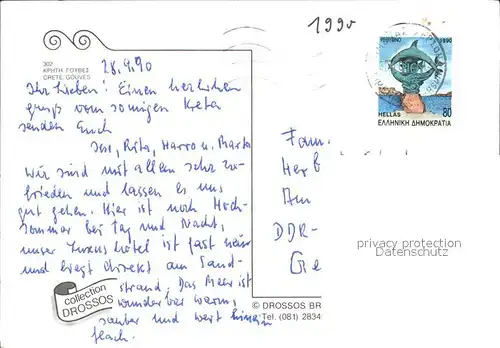 1990
302
ΚΡΗΤΗ. ΓΟΥΒΕΣ
CRETE. GOUVES
28.9.90
Ihr Lieben! Einen herzlichen
gruß vom sonnigen Kreta
senden Euch
Rita, Harro u. Marta
Wir sind mit allem sehr zu-
frieden und lassen es uns
gut gehen. Hier ist noch Hoch-
sommer bei Tag und Nacht,
unser Luxushotel ist fast neu
und liegt direkt am Sand-
strand. Das Meer ist
wunderbar warm,
sauber und weit hinein
flach.
collection
DROSSOS
© DROSSOS BR
Tel. (081) 2834
1990
HELLAS 80
ΕΛΛΗΝΙΚΗ ΔΗΜΟΚΡΑΤΙΑ
Fam.
Herb
Am
DDR-
Ge
privacy protection
Datenschutz